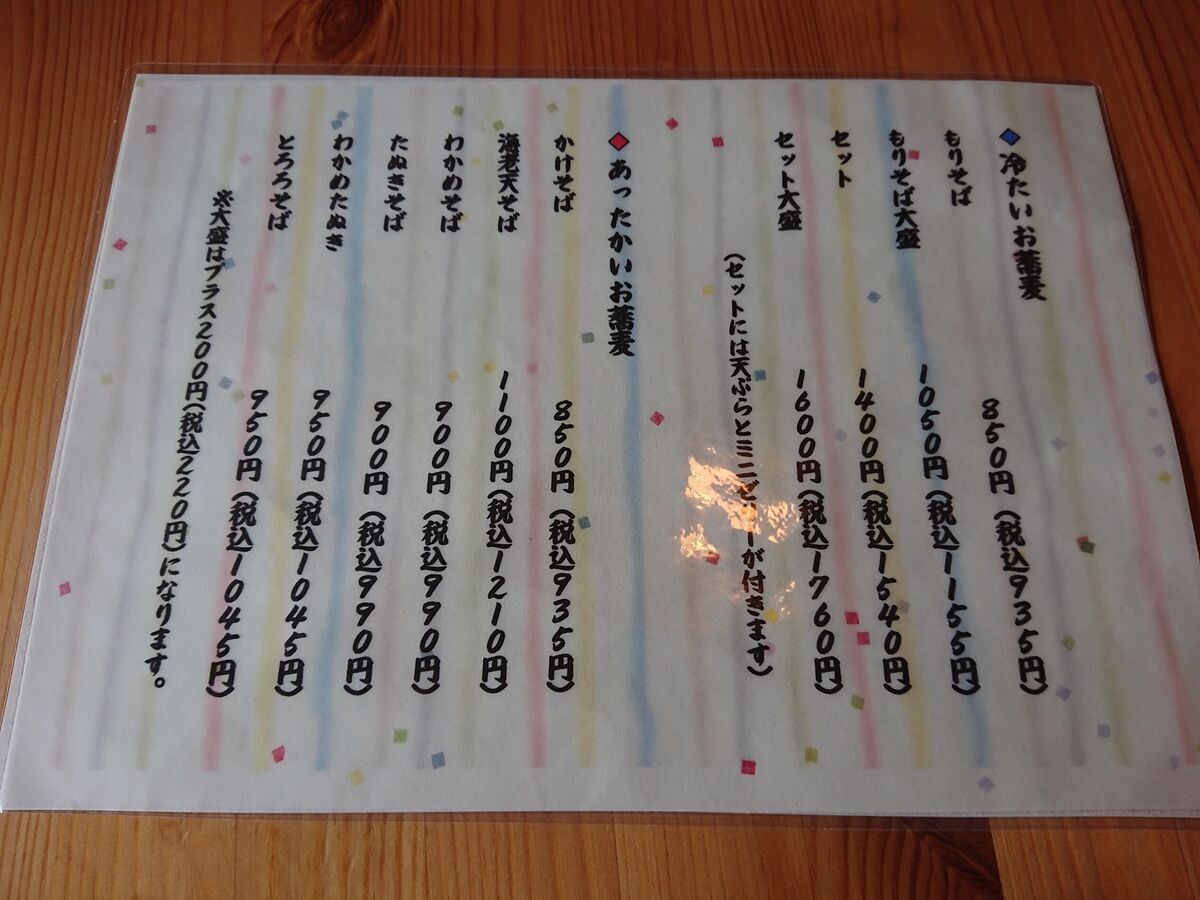 ◆冷たいお蕎麦
もりそば 850円(税込935円)
もりそば大盛 1050円(税込1155円)
セット 1400円(税込1540円)
セット大盛 1600円(税込1760円)
(セットには天ぷらとミニゼリーが付きます)
◆あったかいお蕎麦
かけそば 850円(税込935円)
海老天そば 1100円(税込1210円)
わかめそば 900円(税込990円)
たぬきそば 900円(税込990円)
わかめたぬき 950円(税込1045円)
とろろそば 950円(税込1045円)
※大盛はプラス200円(税込220円)になります。